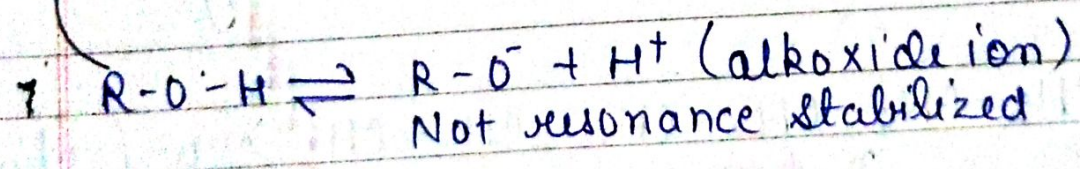 7 R-O-H ⇌ R-O⁻ + H⁺ (alkoxide ion)
Not resonance stabilized